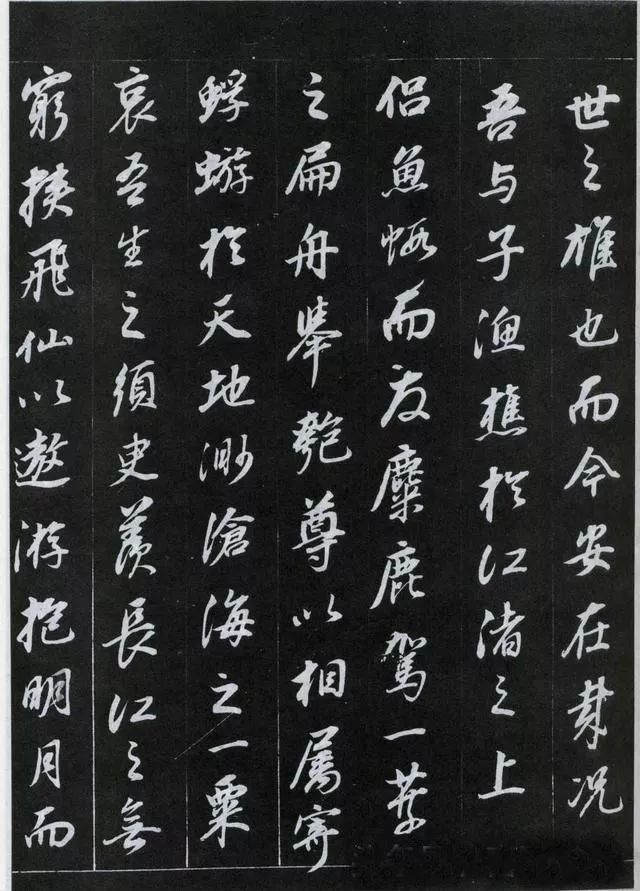 世之雄也而今安在哉况
吾与子渔樵於江渚之上
侣鱼虾而友麋鹿驾一叶
之扁舟举匏尊以相属寄
蜉蝣於天地渺沧海之一粟
哀吾生之须臾羡长江之无
穷挟飞仙以遨游抱明月而